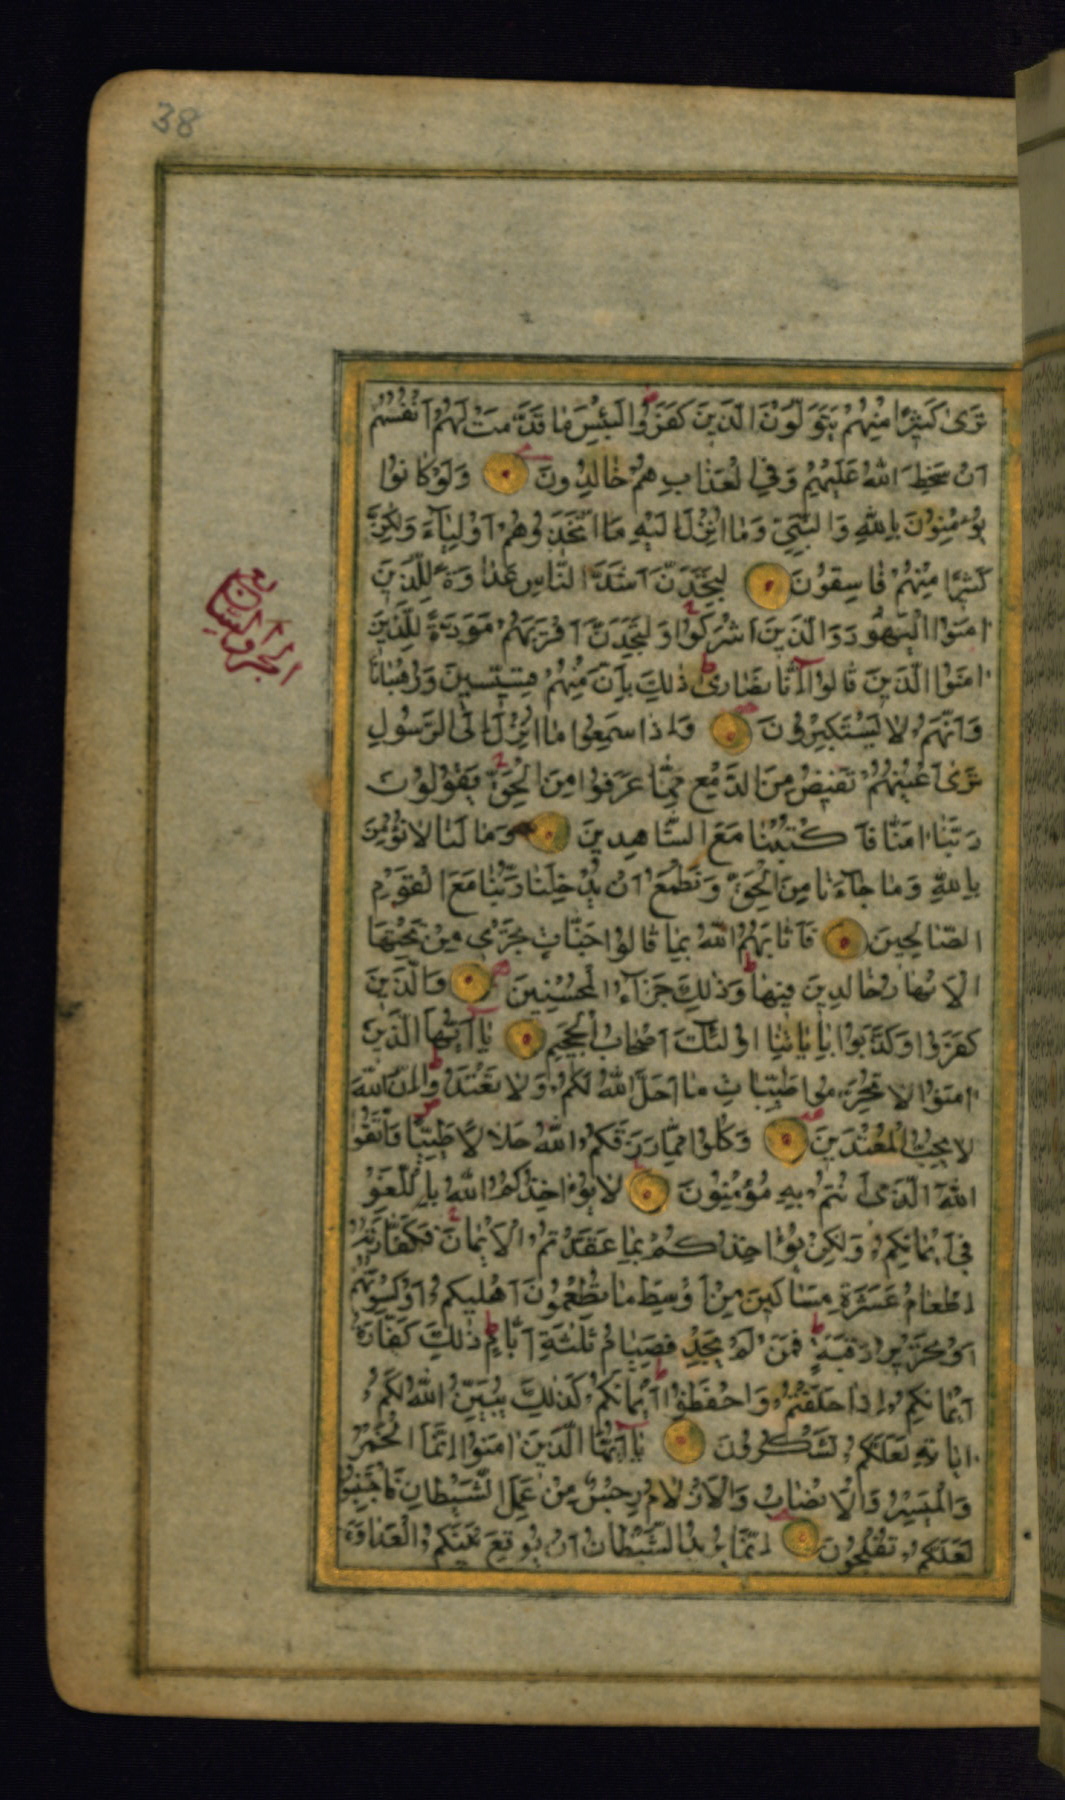 38
تَرَىٰ كَثِيرًا مِنْهُمْ يَتَوَلَّوْنَ الَّذِينَ كَفَرُوا لَبِئْسَ مَا قَدَّمَتْ لَهُمْ اَنْفُسُهُمْ
اَنْ سَخِطَ اللّٰهُ عَلَيْهِمْ وَفِي الْعَذَابِ هُمْ خَالِدُونَ وَلَوْ كَانُوا
يُؤْمِنُونَ بِاللّٰهِ وَالنَّبِيِّ وَمَا اُنْزِلَ اِلَيْهِ مَا اتَّخَذُوهُمْ اَوْلِيَاۤءَ وَلٰكِنَّ
كَثِيرًا مِنْهُمْ فَاسِقُونَ لَتَجِدَنَّ اَشَدَّ النَّاسِ عَدَاوَةً لِلَّذِينَ
اٰمَنُوا الْيَهُودَ وَالَّذِينَ اَشْرَكُوا وَلَتَجِدَنَّ اَقْرَبَهُمْ مَوَدَّةً لِلَّذِينَ
اٰمَنُوا الَّذِينَ قَالُوا اِنَّا نَصَارَىٰ ذٰلِكَ بِاَنَّ مِنْهُمْ قِسِّيسِينَ وَرُهْبَانًا
وَاَنَّهُمْ لَا يَسْتَكْبِرُونَ وَاِذَا سَمِعُوا مَا اُنْزِلَ اِلَى الرَّسُولِ
تَرَىٰ اَعْيُنَهُمْ تَفِيضُ مِنَ الدَّمْعِ مِمَّا عَرَفُوا مِنَ الْحَقِّ يَقُولُونَ
رَبَّنَا اٰمَنَّا فَاكْتُبْنَا مَعَ الشَّاهِدِينَ وَمَا لَنَا لَا نُؤْمِنُ
بِاللّٰهِ وَمَا جَاۤءَنَا مِنَ الْحَقِّ وَنَطْمَعُ اَنْ يُدْخِلَنَا رَبُّنَا مَعَ الْقَوْمِ
الصَّالِحِينَ فَاَثَابَهُمُ اللّٰهُ بِمَا قَالُوا جَنَّاتٍ تَجْرِي مِنْ تَحْتِهَا
الْاَنْهَارُ خَالِدِينَ فِيهَا وَذٰلِكَ جَزَاۤءُ الْمُحْسِنِينَ وَالَّذِينَ
كَفَرُوا وَكَذَّبُوا بِاٰيَاتِنَا اُولٰئِكَ اَصْحَابُ الْجَحِيمِ يَا اَيُّهَا الَّذِينَ
اٰمَنُوا لَا تُحَرِّمُوا طَيِّبَاتِ مَا اَحَلَّ اللّٰهُ لَكُمْ وَلَا تَعْتَدُوا اِنَّ اللّٰهَ
لَا يُحِبُّ الْمُعْتَدِينَ وَكُلُوا مِمَّا رَزَقَكُمُ اللّٰهُ حَلَالًا طَيِّبًا وَاتَّقُوا
اللّٰهَ الَّذِي اَنْتُمْ بِهِ مُؤْمِنُونَ لَا يُؤَاخِذُكُمُ اللّٰهُ بِاللَّغْوِ
فِي اَيْمَانِكُمْ وَلٰكِنْ يُؤَاخِذُكُمْ بِمَا عَقَّدْتُمُ الْاَيْمَانَ فَكَفَّارَتُهُ
اِطْعَامُ عَشَرَةِ مَسَاكِينَ مِنْ اَوْسَطِ مَا تُطْعِمُونَ اَهْلِيكُمْ اَوْ كِسْوَتُهُمْ
اَوْ تَحْرِيرُ رَقَبَةٍ فَمَنْ لَمْ يَجِدْ فَصِيَامُ ثَلٰثَةِ اَيَّامٍ ذٰلِكَ كَفَّارَةُ
اَيْمَانِكُمْ اِذَا حَلَفْتُمْ وَاحْفَظُوا اَيْمَانَكُمْ كَذٰلِكَ يُبَيِّنُ اللّٰهُ لَكُمْ
اٰيَاتِهِ لَعَلَّكُمْ تَشْكُرُونَ يَا اَيُّهَا الَّذِينَ اٰمَنُوا اِنَّمَا الْخَمْرُ
وَالْمَيْسِرُ وَالْاَنْصَابُ وَالْاَزْلَامُ رِجْسٌ مِنْ عَمَلِ الشَّيْطَانِ فَاجْتَنِبُوهُ
لَعَلَّكُمْ تُفْلِحُونَ اِنَّمَا يُرِيدُ الشَّيْطَانُ اَنْ يُوقِعَ بَيْنَكُمُ الْعَدَاوَةَ
الجزو السابع